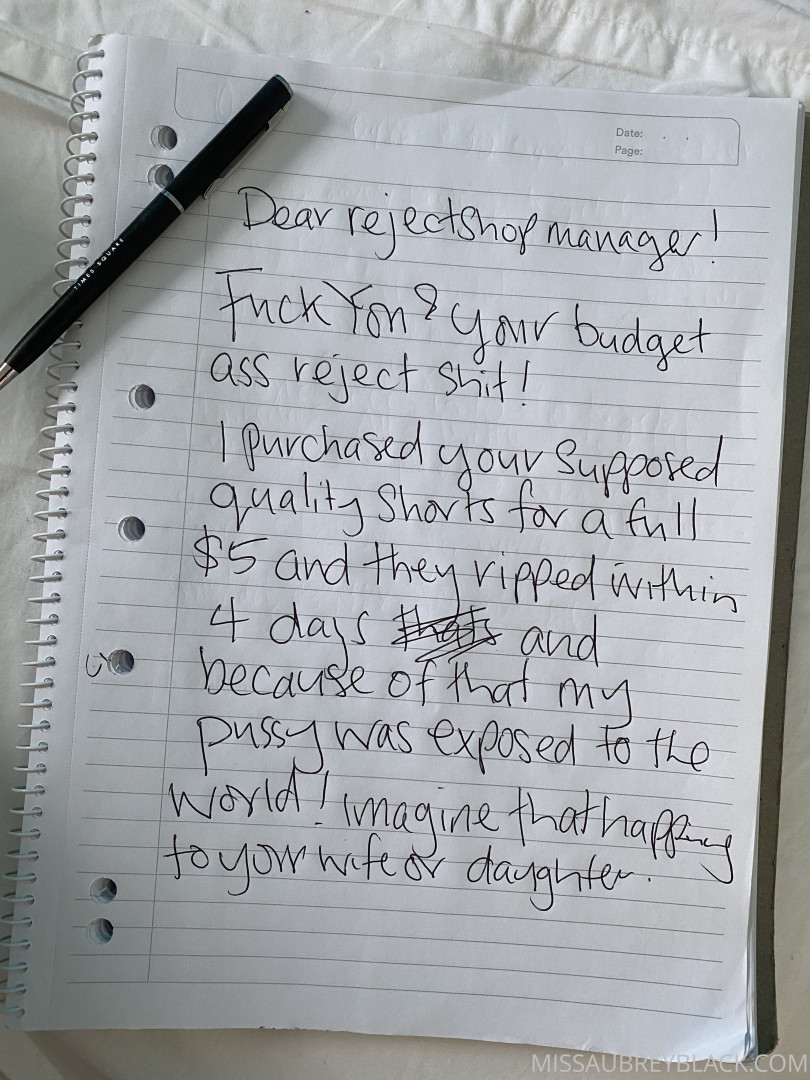 Date:
Page:
TIMES SQUARE
Dear rejectshop manager!
Fuck You & your budget
ass reject shit!
I purchased your supposed
quality shorts for a full
$5 and they ripped within
4 days thats and
because of that my
pussy was exposed to the
world! imagine that happening
to your wife or daughter.
MISSAUBREYBLACK.COM